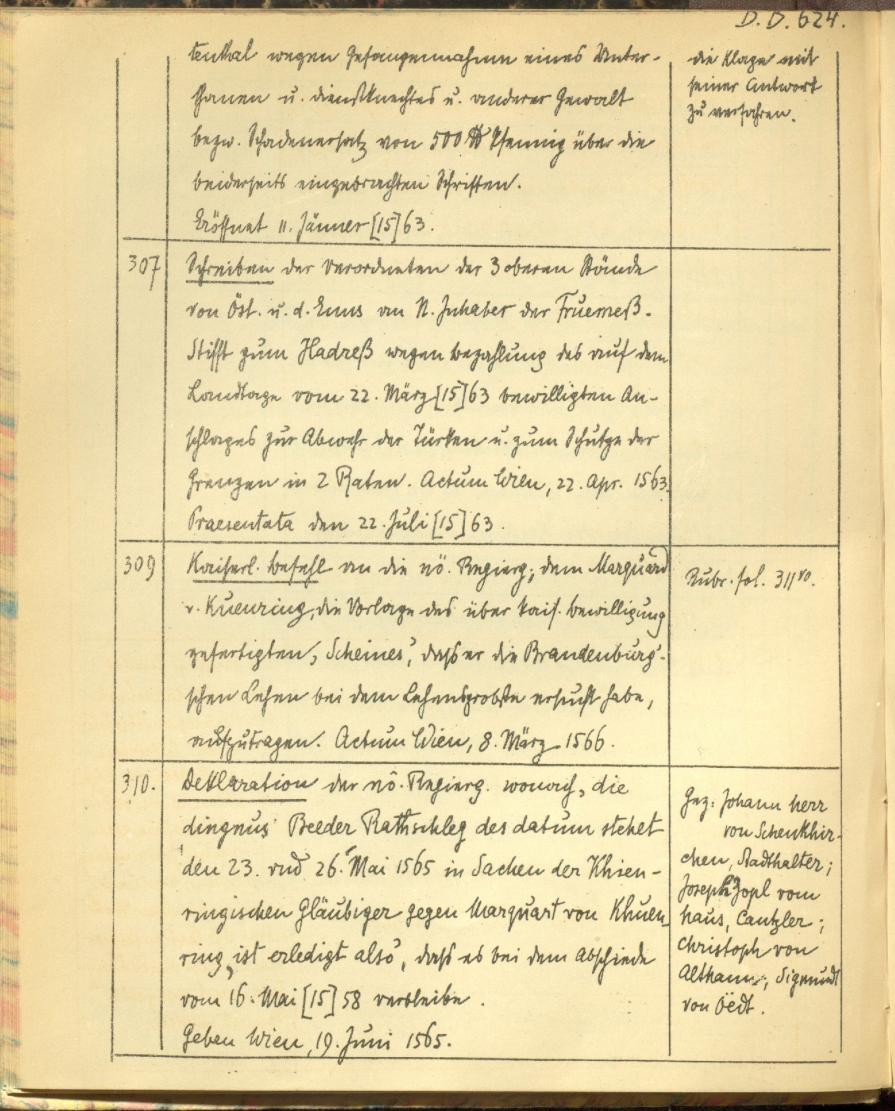 D. D. 624.
tenthal wegen Gefangennahme eines Unter-
thanen u. dienstknechtes u. anderer Gewalt
bezw. Schadenersatz von 500 ℔ Pfennig über die
beiderseits eingebrachten Schriften.
Eröffnet 11. Jänner [15]63.
die Klage mit
seiner Antwort
zu verfahren.
307
Schreiben der Verordneten der 3 oberen Stände
von Öst. u. d. Enns an N. Inhaber der Früemeß-
Stifft zum Hadreß wegen bezahlung des auf dem
Landtage vom 22. März [15]63 bewilligten An-
schlages zur Abwehr der Türken u. zum Schutze der
Grenzen in 2 Raten. Actum Wien, 22. Apr. 1563.
Praesentata den 22. Juli [15]63.
309
Kaiserl. befehl an die nö. Regierg., dem Marquard
v. Kuenring, die Vorlage des über kais. bewilligung
gefertigten „Scheines“, daß er die Brandenburg-
schen Lehen bei dem Lehensprobste ersucht habe,
aufzutragen. Actum Wien, 8. März 1566.
Rubr. fol. 311ᵛᵒ.
310.
Deklaration der nö. Regierg. wonach „die
dingnus Beeder Rathschleg des datum stehet
den 23. vnd 26. Mai 1565 in Sachen der Khien-
ringischen Gläubiger gegen Marquart von Khuen-
ring „ist erledigt also“, daß es bei dem Abschiede
vom 16. Mai [15]58 verbleibe.
Geben Wien, 19. Juni 1565.
Gez: Johann herr
von Schenkhir-
chen, Stadthalter;
Joseph Zopl vom
haus, Cantzler;
Christoph von
Althann; Sigmundt
von Öedt.